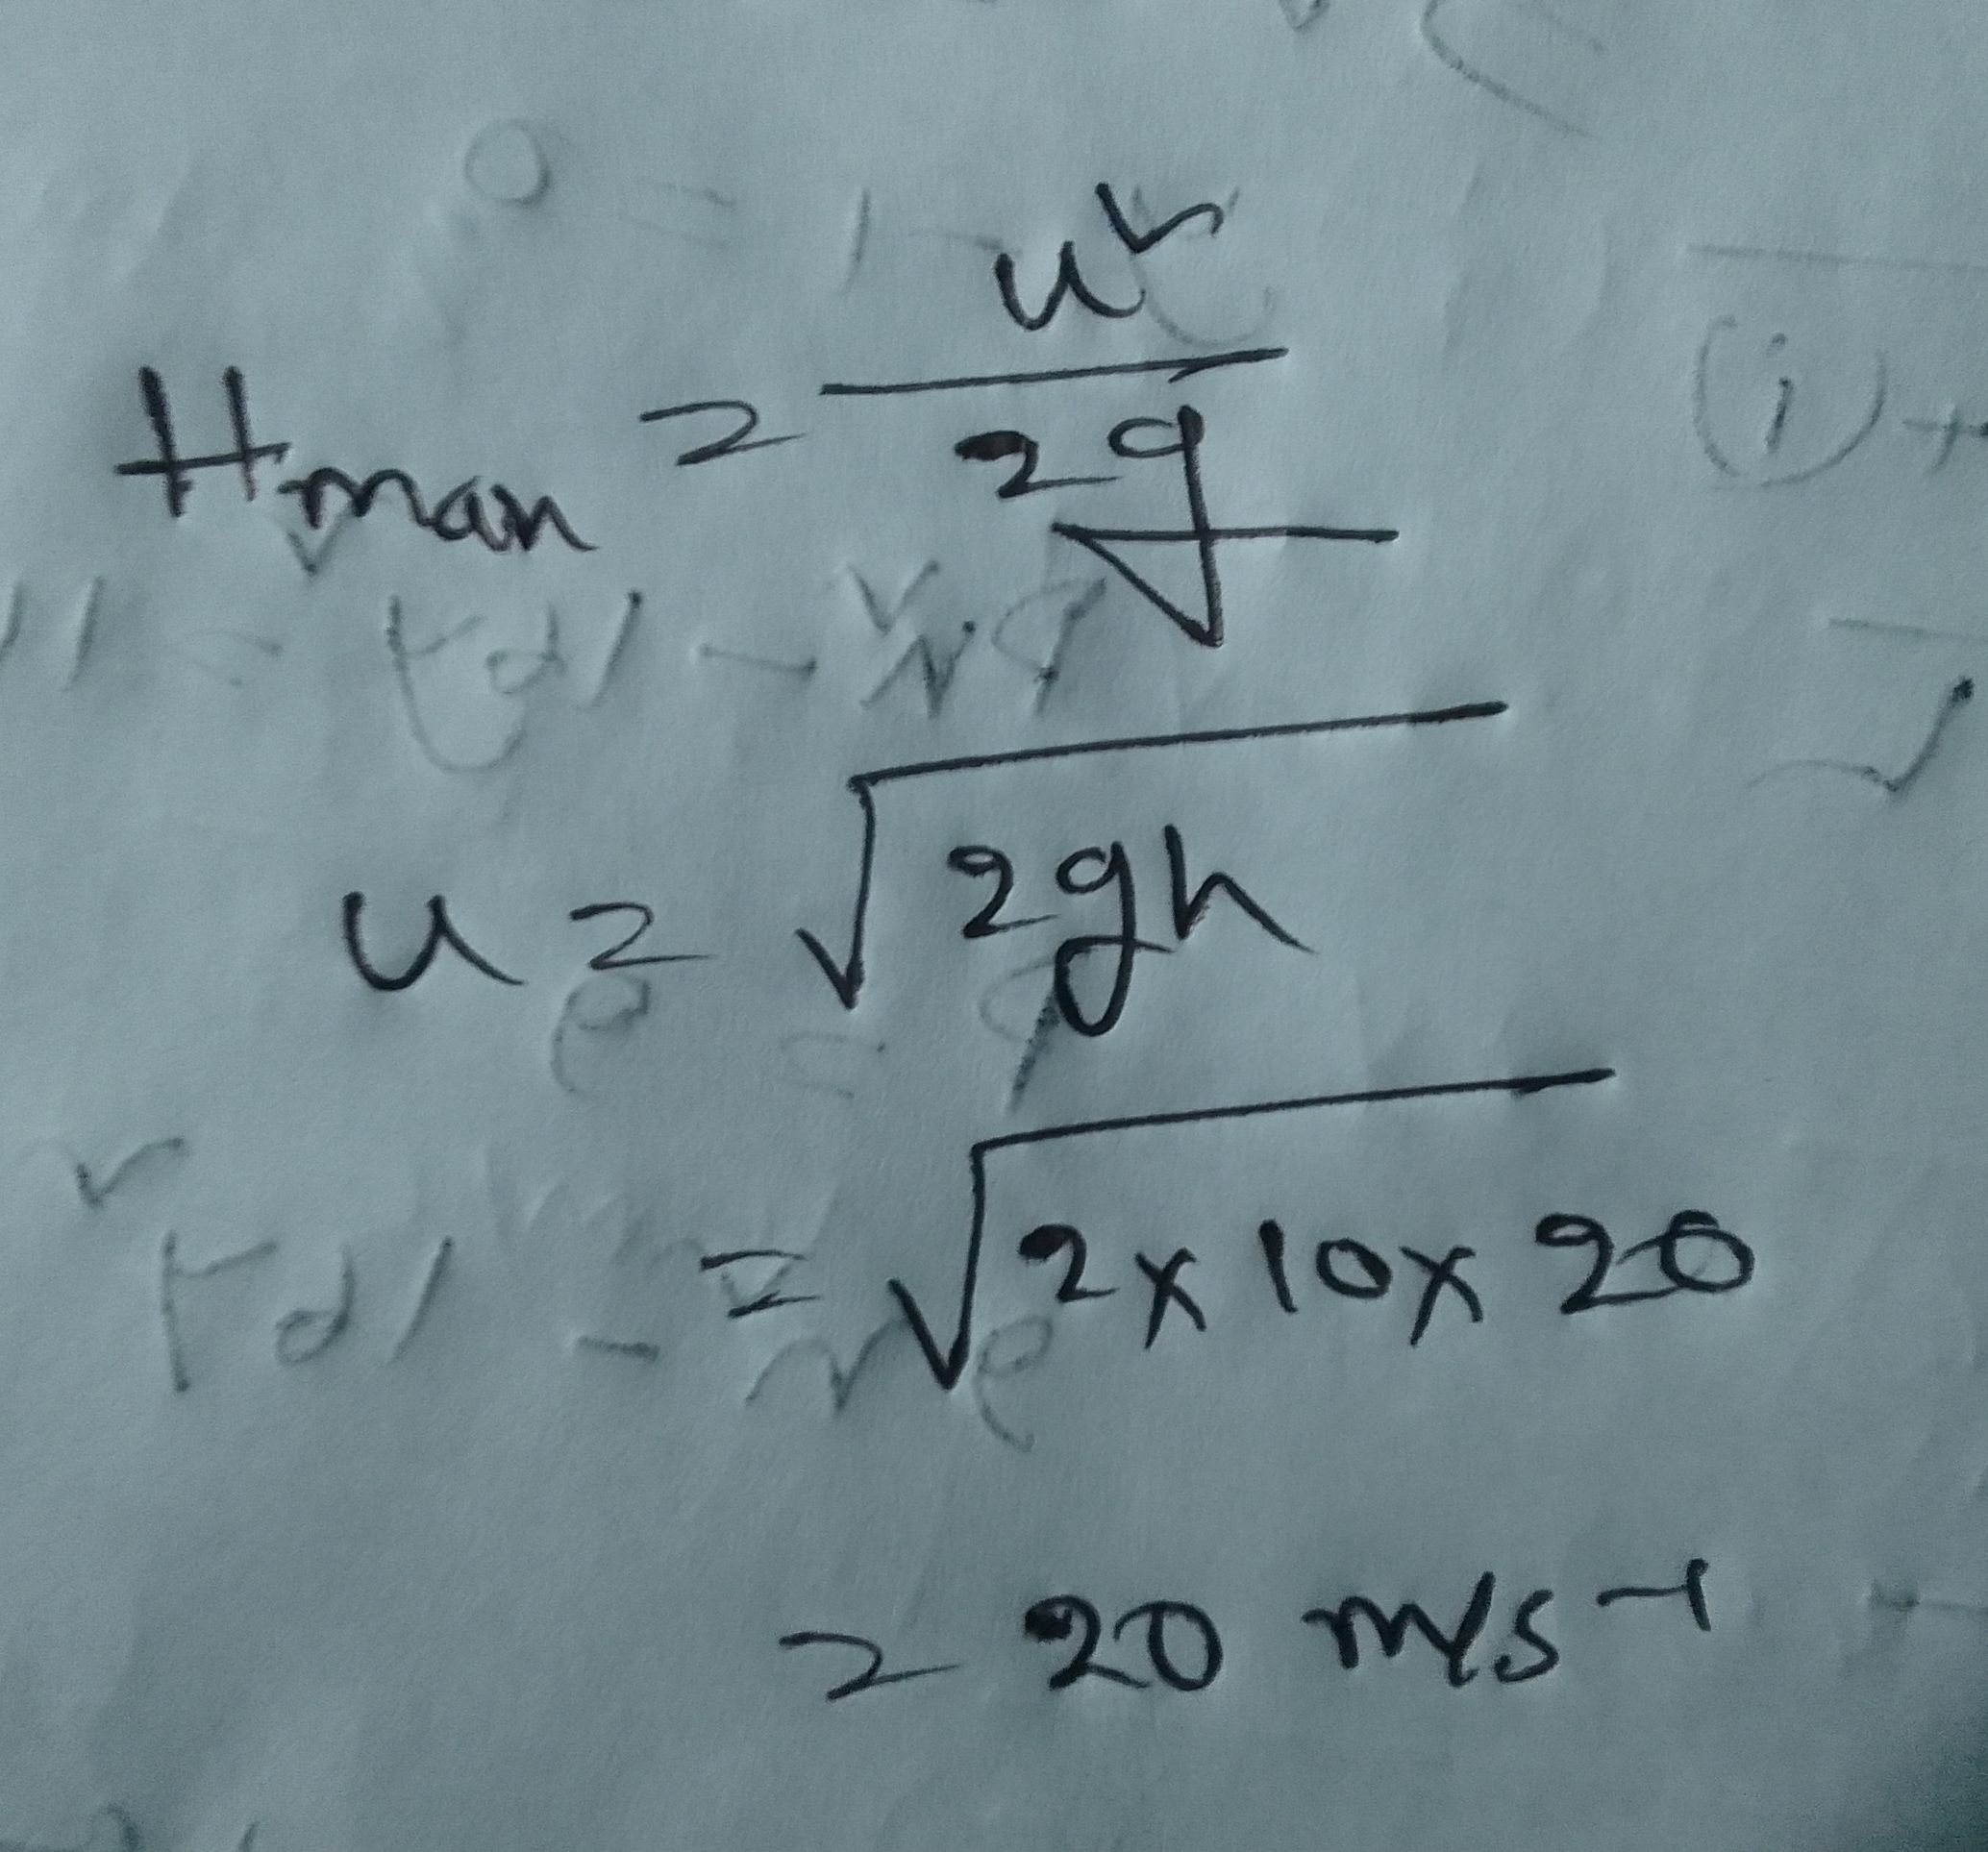 Hmax = u² / 2g
u = √2gh
= √2x10x20
= 20 m/s⁻¹